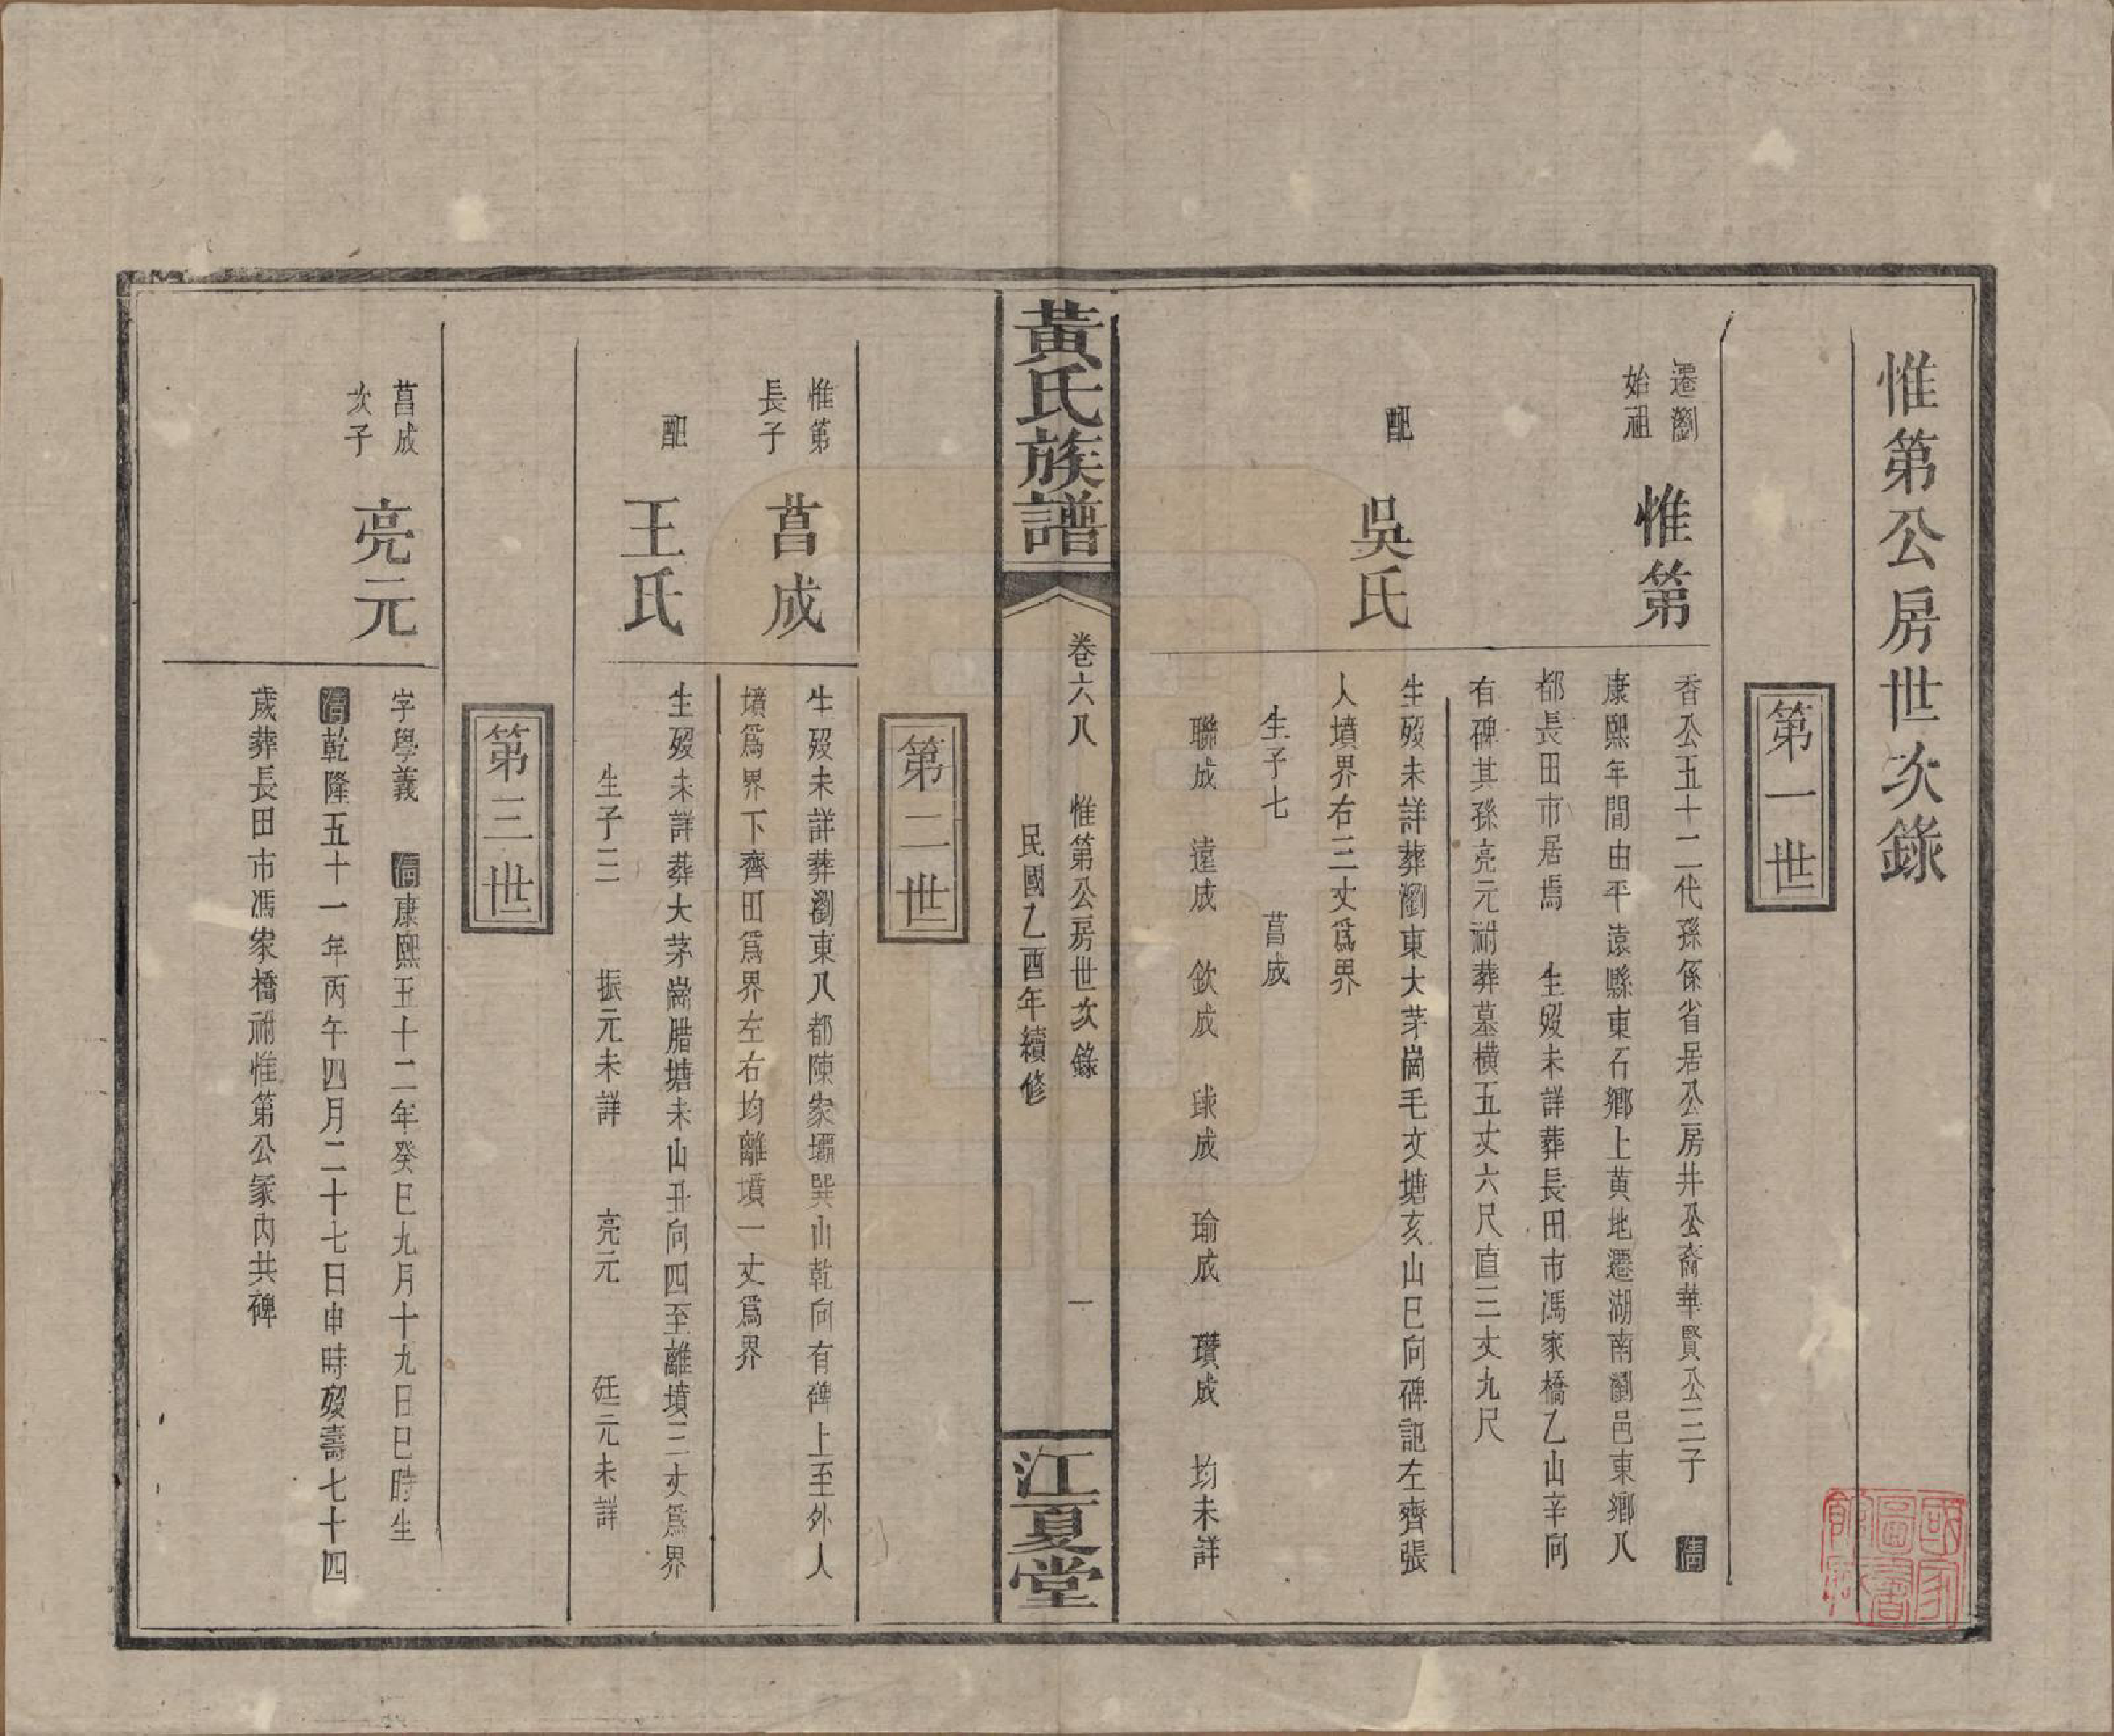 惟第公房世次錄
第一世
遷瀏
始祖
惟第
香公五十二代孫係省居公房井公裔華賢公三子 清
康熙年間由平遠縣東石鄉上黃地遷湖南瀏邑東鄉八
都長田市居焉 生歿未詳葬長田市馮家橋乙山辛向
有碑其孫亮元祔葬墓橫五丈六尺直三丈九尺
配
吳氏
生歿未詳葬瀏東大茅崗毛文塘亥山巳向碑誌左齊張
人墳界右三丈爲界
生子七 菖成
聯成 遠成 欽成 球成 瑜成 瓚成 均未詳
黃氏族譜
卷六八 惟第公房世次錄 一
民國乙酉年續修
江夏堂
第二世
惟第
長子
菖成
生歿未詳葬瀏東八都陳家壩巽山乾向有碑上至外人
墳爲界下齊田爲界左右均離墳一丈爲界
配
王氏
生歿未詳葬大茅崗腊塘未山丑向四至離墳三丈爲界
生子三 振元未詳 亮元 廷元未詳
第三世
菖成
次子
亮元
字學義 清康熙五十二年癸巳九月十九日巳時生
清乾隆五十一年丙午四月二十七日申時歿壽七十四
歲葬長田市馮家橋祔惟第公冢內共碑